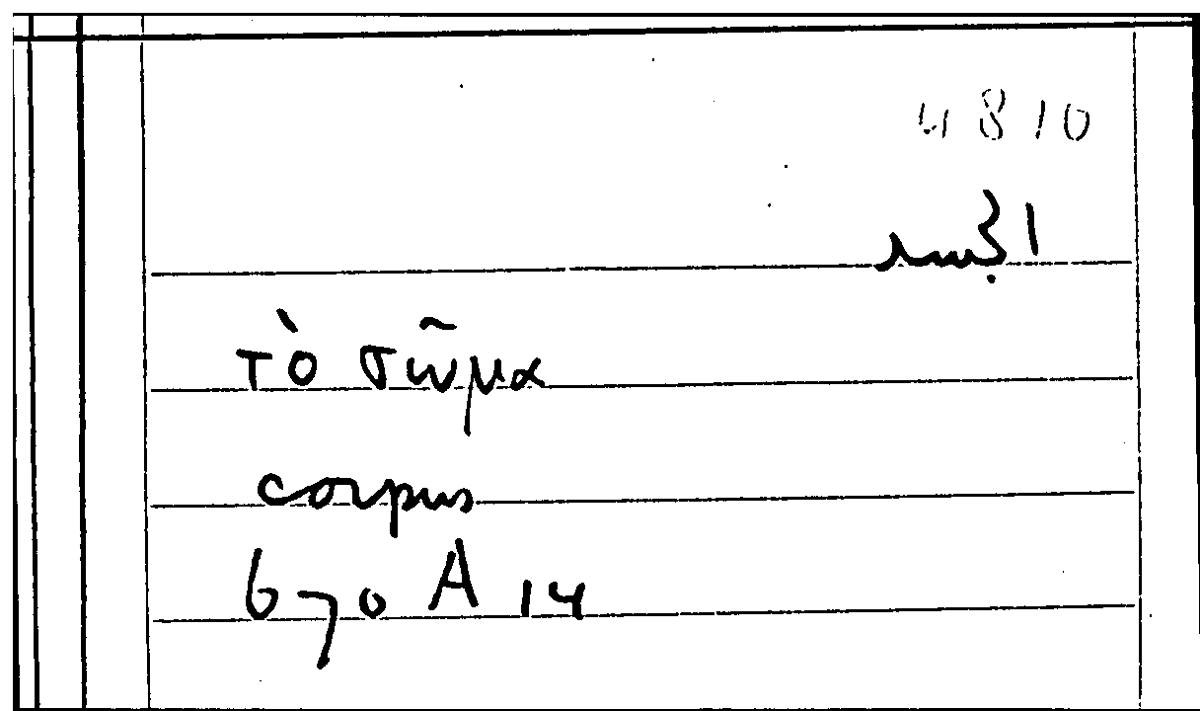 4810
الجسم
τὸ σῶμα
corpus
670 A 14